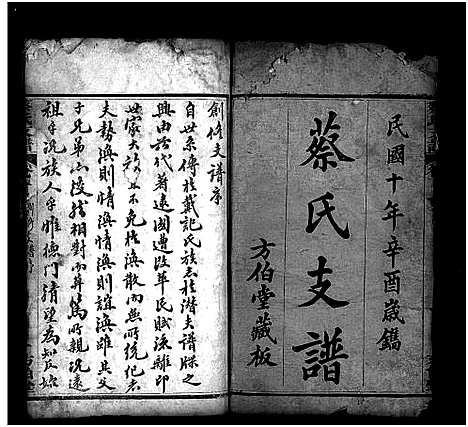 民國十年辛酉歲鐫
蔡氏支譜
方伯堂藏板
創修支譜序
自世系傳於戴記氏族志於潛夫譜牒之
興由古代著遠國遭改革民賦流離卽
世家大族不免於渙散而無所統紀未
夫勢渙則情渙情渙則誼渙雖其父
子兄弟山陵相對而弁髦所親況遠
祖乎況族人乎惟德門清望為知反始